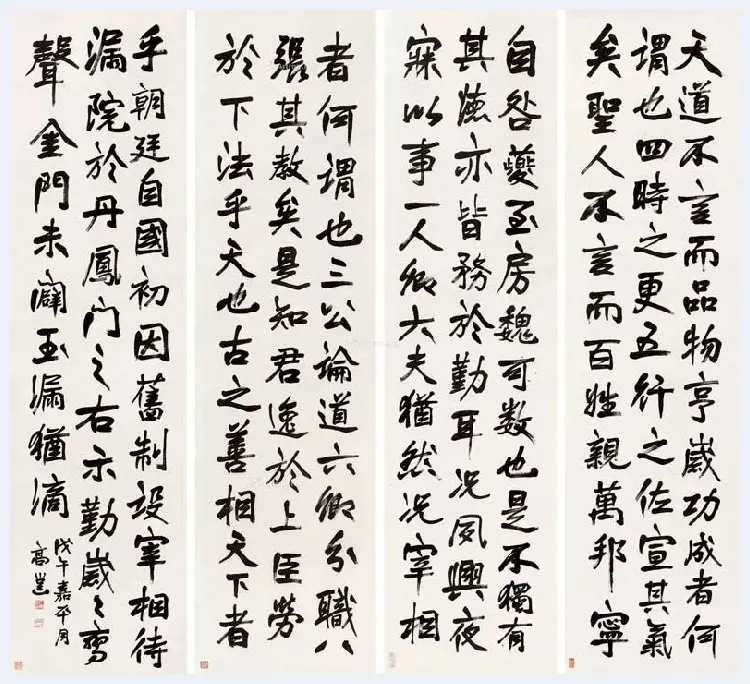 天道不言而品物亨歲功成者何
謂也四時之更五行之佐宣其氣
矣聖人不言而百姓親萬邦寧
自咎夔至房魏可数也是不獨有
其德亦皆務於勤耳况夙興夜
寐以事一人卿大夫猶然况宰相
者何謂也三公論道六卿分職
張其教矣是知君逸於上臣勞
於下法乎天也古之善相天下者
乎朝廷自國初因舊制設宰相待
漏院於丹鳳門之右示勤歲々鸞
聲金門未闢玉漏猶滴
戊午嘉平月
高邕